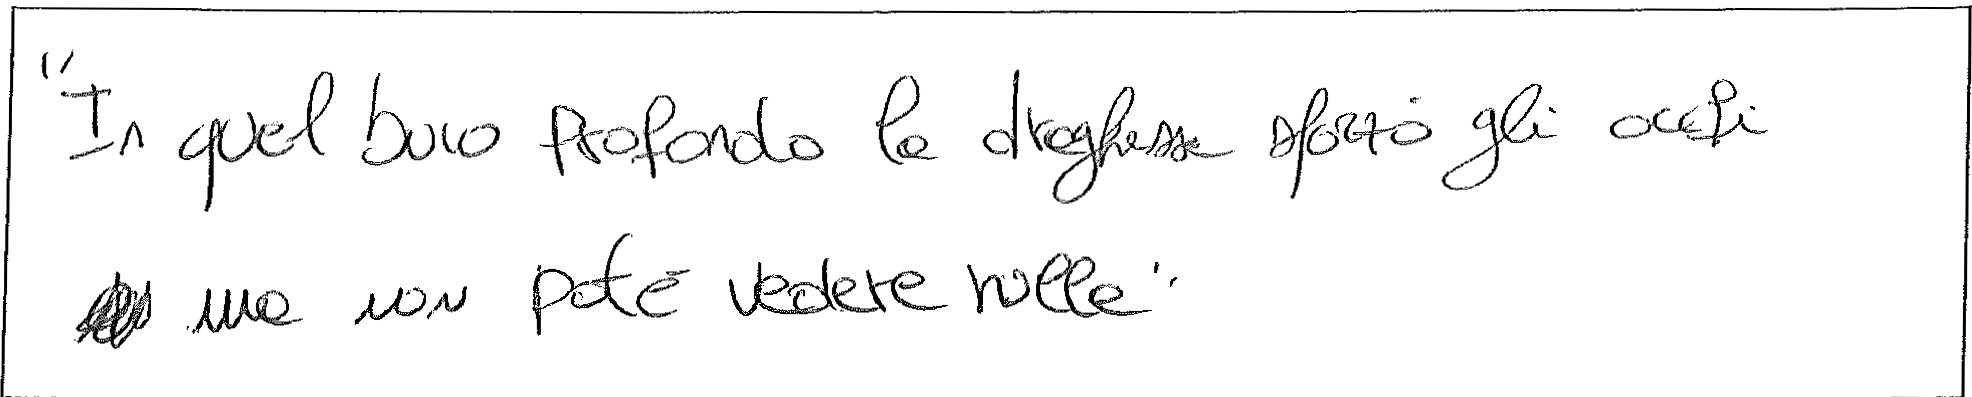 "In quel buco profondo la draghessa sforzò gli occhi
ma non poté vedere nulla"